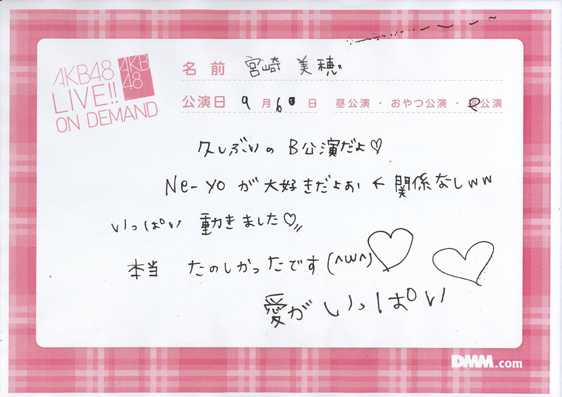 AKB48
LIVE!!
ON DEMAND
AKB
48
名前 宮崎 美穂
公演日 9月6日 昼公演・おやつ公演・夜公演
久しぶりの B公演だよ♡
Ne-Yo が 大好きだよぉい ← 関係なしww
いっぱい 動きました♡
本当 たのしかったです(^ω^)
愛が いっぱい
DMM.com